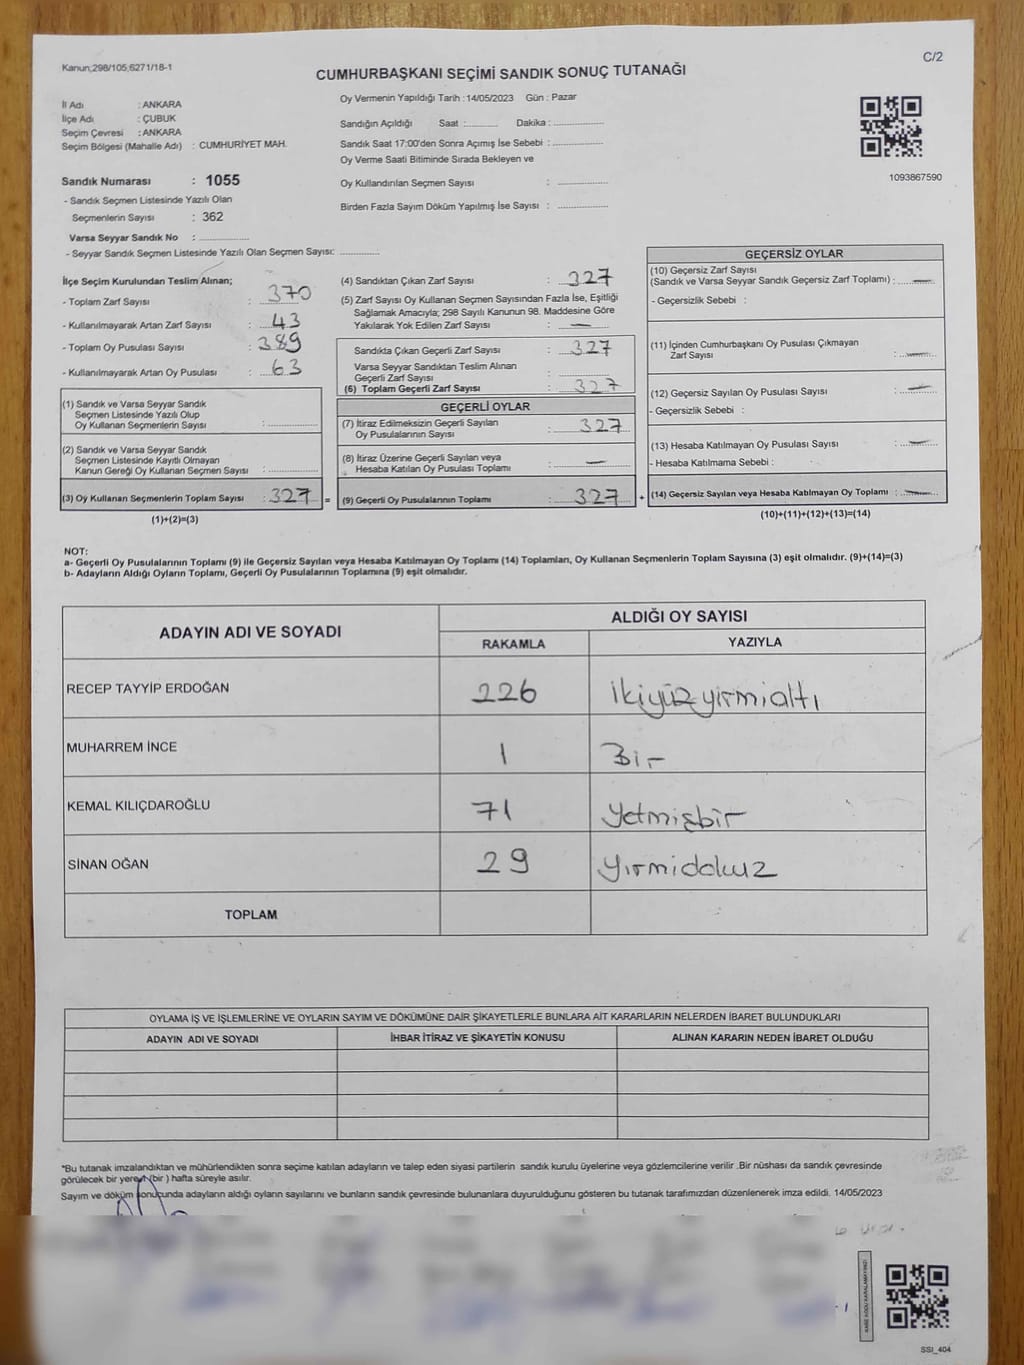 Kanun;298/105,6271/18-1
C/2
CUMHURBAŞKANI SEÇİMİ SANDIK SONUÇ TUTANAĞI
İl Adı : ANKARA
İlçe Adı : ÇUBUK
Seçim Çevresi : ANKARA
Seçim Bölgesi (Mahalle Adı) : CUMHURİYET MAH.
Sandık Numarası : 1055
- Sandık Seçmen Listesinde Yazılı Olan
Seçmenlerin Sayısı : 362
Varsa Seyyar Sandık No : ..............
- Seyyar Sandık Seçmen Listesinde Yazılı Olan Seçmen Sayısı: ............
Oy Vermenin Yapıldığı Tarih : 14/05/2023 Gün : Pazar
Sandığın Açıldığı Saat :.......... Dakika : ................
Sandık Saat 17:00'den Sonra Açımış İse Sebebi : ................
Oy Verme Saati Bitiminde Sırada Bekleyen ve
Oy Kullandırılan Seçmen Sayısı : ................
Birden Fazla Sayım Döküm Yapılmış İse Sayısı : ................
1093867590
İlçe Seçim Kurulundan Teslim Alınan;
- Toplam Zarf Sayısı : 370
- Kullanılmayarak Artan Zarf Sayısı : 43
- Toplam Oy Pusulası Sayısı : 389
- Kullanılmayarak Artan Oy Pusulası : 63
(1) Sandık ve Varsa Seyyar Sandık
Seçmen Listesinde Yazılı Olup
Oy Kullanan Seçmenlerin Sayısı : ..............
(2) Sandık ve Varsa Seyyar Sandık
Seçmen Listesinde Kayıtlı Olmayan
Kanun Gereği Oy Kullanan Seçmen Sayısı : ..............
(3) Oy Kullanan Seçmenlerin Toplam Sayısı : 327 =
(1)+(2)=(3)
(4) Sandıktan Çıkan Zarf Sayısı : 327
(5) Zarf Sayısı Oy Kullanan Seçmen Sayısından Fazla İse, Eşitliği
Sağlamak Amacıyla; 298 Sayılı Kanunun 98. Maddesine Göre
Yakılarak Yok Edilen Zarf Sayısı : —
Sandıkta Çıkan Geçerli Zarf Sayısı : 327
Varsa Seyyar Sandıktan Teslim Alınan
Geçerli Zarf Sayısı : ..............
(6) Toplam Geçerli Zarf Sayısı : 327
GEÇERLİ OYLAR
(7) İtiraz Edilmeksizin Geçerli Sayılan
Oy Pusulalarının Sayısı : 327
(8) İtiraz Üzerine Geçerli Sayılan veya
Hesaba Katılan Oy Pusulası Toplamı : —
(9) Geçerli Oy Pusulalarının Toplamı : 327 +
GEÇERSİZ OYLAR
(10) Geçersiz Zarf Sayısı
(Sandık ve Varsa Seyyar Sandık Geçersiz Zarf Toplamı) : —
- Geçersizlik Sebebi :
(11) İçinden Cumhurbaşkanı Oy Pusulası Çıkmayan
Zarf Sayısı : —
(12) Geçersiz Sayılan Oy Pusulası Sayısı : —
- Geçersizlik Sebebi :
(13) Hesaba Katılmayan Oy Pusulası Sayısı : —
- Hesaba Katılmama Sebebi :
(14) Geçersiz Sayılan veya Hesaba Katılmayan Oy Toplamı : —
(10)+(11)+(12)+(13)=(14)
NOT:
a- Geçerli Oy Pusulalarının Toplamı (9) ile Geçersiz Sayılan veya Hesaba Katılmayan Oy Toplamı (14) Toplamları, Oy Kullanan Seçmenlerin Toplam Sayısına (3) eşit olmalıdır. (9)+(14)=(3)
b- Adayların Aldığı Oyların Toplamı, Geçerli Oy Pusulalarının Toplamına (9) eşit olmalıdır.
ADAYIN ADI VE SOYADI ALDIĞI OY SAYISI
RAKAMLA YAZIYLA
RECEP TAYYİP ERDOĞAN 226 ikiyüzyirmialtı
MUHARREM İNCE 1 Bir
KEMAL KILIÇDAROĞLU 71 Yetmişbir
SİNAN OĞAN 29 Yirmidokuz
TOPLAM
OYLAMA İŞ VE İŞLEMLERİNE VE OYLARIN SAYIM VE DÖKÜMÜNE DAİR ŞİKAYETLERLE BUNLARA AİT KARARLARIN NELERDEN İBARET BULUNDUKLARI
ADAYIN ADI VE SOYADI İHBAR İTİRAZ VE ŞİKAYETİN KONUSU ALINAN KARARIN NEDEN İBARET OLDUĞU
*Bu tutanak imzalandıktan ve mühürlendikten sonra seçime katılan adayların ve talep eden siyasi partilerin sandık kurulu üyelerine veya gözlemcilerine verilir .Bir nüshası da sandık çevresinde
görülecek bir yere (bir ) hafta süreyle asılır.
Sayım ve döküm sonucunda adayların aldığı oyların sayılarını ve bunların sandık çevresinde bulunanlara duyurulduğunu gösteren bu tutanak tarafımızdan düzenlenerek imza edildi. 14/05/2023
KARE KODU KARALAMAYINIZ!
SSI_404